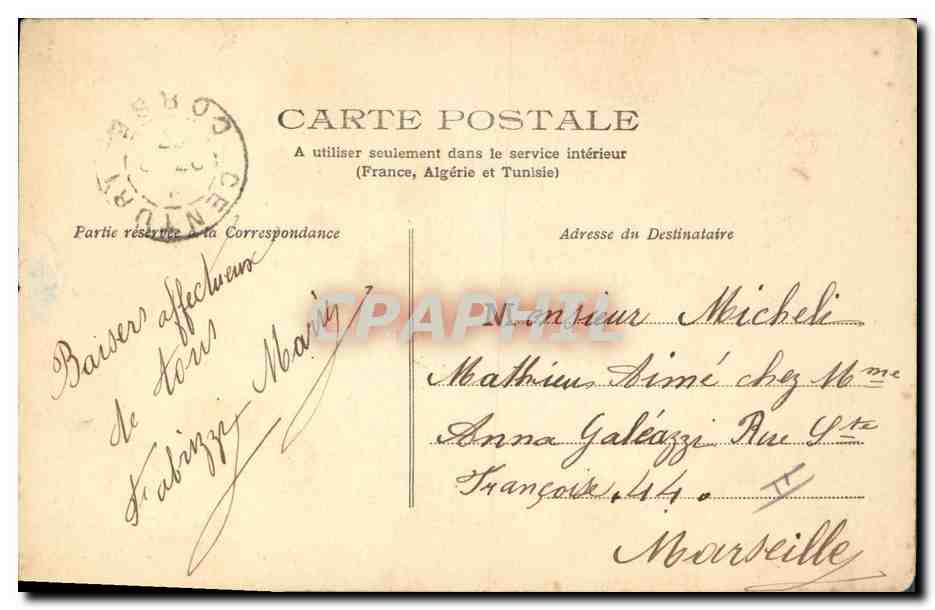 CARTE POSTALE
A utiliser seulement dans le service intérieur
(France, Algérie et Tunisie)
CENTURI CORSE
Partie réservée à la Correspondance
Adresse du Destinataire
Baisers affectueux
de tous
Fabrizzi Mary
CPAPHIL
Monsieur Micheli
Mathieu Aimé chez Mme
Anna Galéazzi Rue Ste
Françoise 44.
II
Marseille